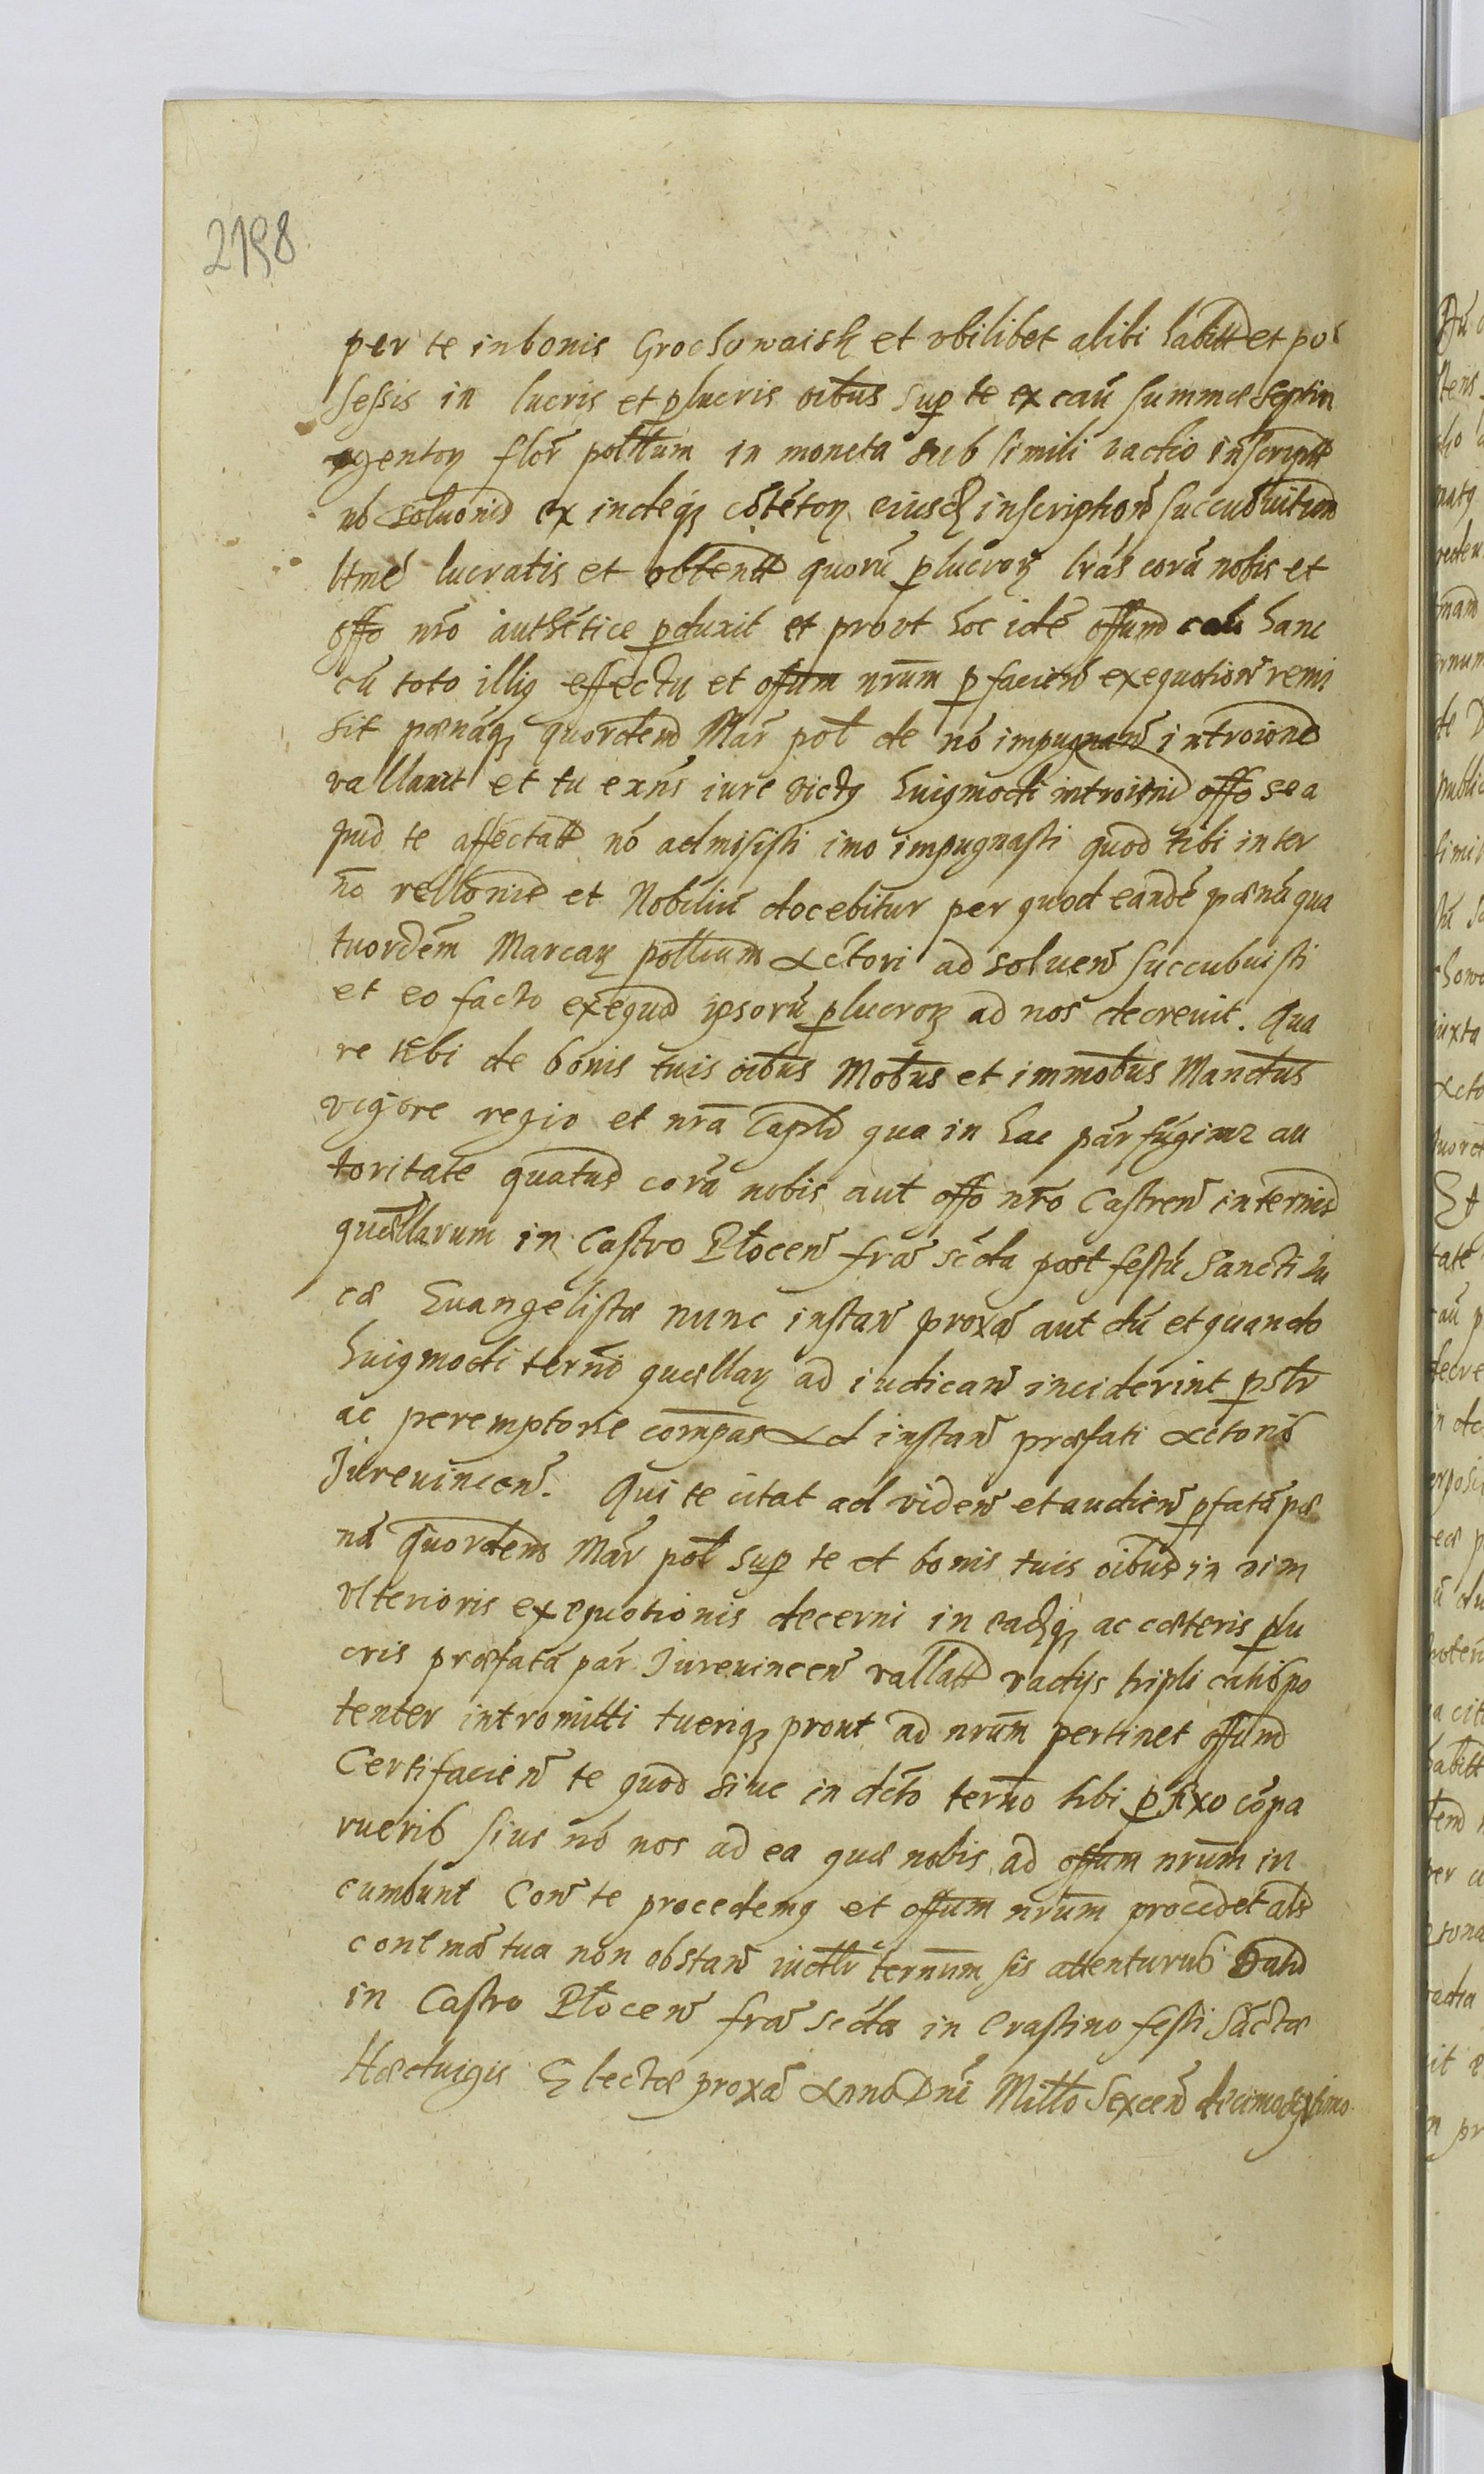 2198
per te in bonis Grochowaisk et vbilibet alibi habitt et pos
sessis in lucris et plucris oibus sup te ex cau summæ septin
gentoꝝ flor polllum in moneta sub simili vadio inscriptt
solvonis ex indeqꝫ cótétoꝝ eiusd inscription succubuitur
ltmé lucratis et obtentt quorú plucroꝝ lrás corá nobis et
offo nro authétice pduxit et provt hoc idé offum cau hanc
cú toto illiꝯ effectu et offum nrum p facien exequotion remi
sit pænáqꝫ quordem Mar pol de nó impugnan introione
vallavit et tu exns iure victꝯ huiꝯmodi introitui offo se a
pud te affectatt nó admisisti imo impugnasti quod tibi in ter
no rellonis et Nobiliú docebitur per quod eandé pænú qua
tuordém Marcaꝝ pollium Actori ad soluen succubuisti
et eo facto exequo ipsorú plucroꝝ ad nos decrevit. Qua
re tibi de bonis tuis oibus Mobus et immobus Mandus
vigore regio et nra Caplis qua in hac par fúgimr au
toritate quatus corá nobis aut offo nro Castren in termis
quællarum in Castro Plocen fræ scda post festú Sancti Lu
cæ Euangelistæ nunc instan proxá aut dú et quando
huiꝯmodi termi quællaꝝ ad iudican inciderint pstr
ac peremptorie compas Ad instan præfati Actoris
Jurevincen. Qui te citat ad viden et audien pfatá pæ
ná quordem Mar pol sup te et bonis tuis oibus in vim
vlterioris exequotionis decerni in eadqꝫ ac cæteris plu
cris præfatá par Jurevincen vallatt vadijs tripli cahis po
tenter intromitti tueriqꝫ prout ad nrum pertinet offum
Certifacien te quod siue in dcto termo tibi pfixo cópa
rueris siue nó nos ad ea quæ nobis ad offum nrum in
cumbunt Con te procedemꝯ et offum nrum procedet abs
contmá tua non obstan iudtr termum sis attenturus Dat
in Castro Plocen fræ scda in Crastino festi Sáctæ
Hæduigis Electæ proxá Anno Dni Millo Sexcen decimoseptimo